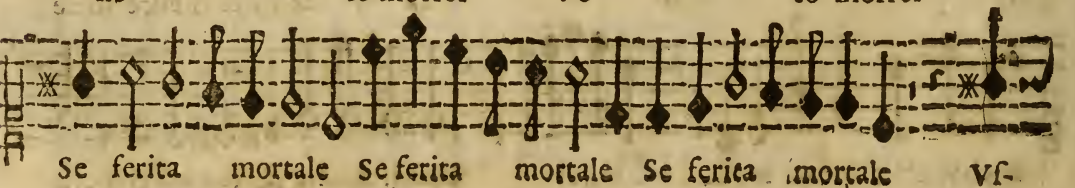 Se ferita mortale Se ferita mortale Se ferita mortale Vſ-